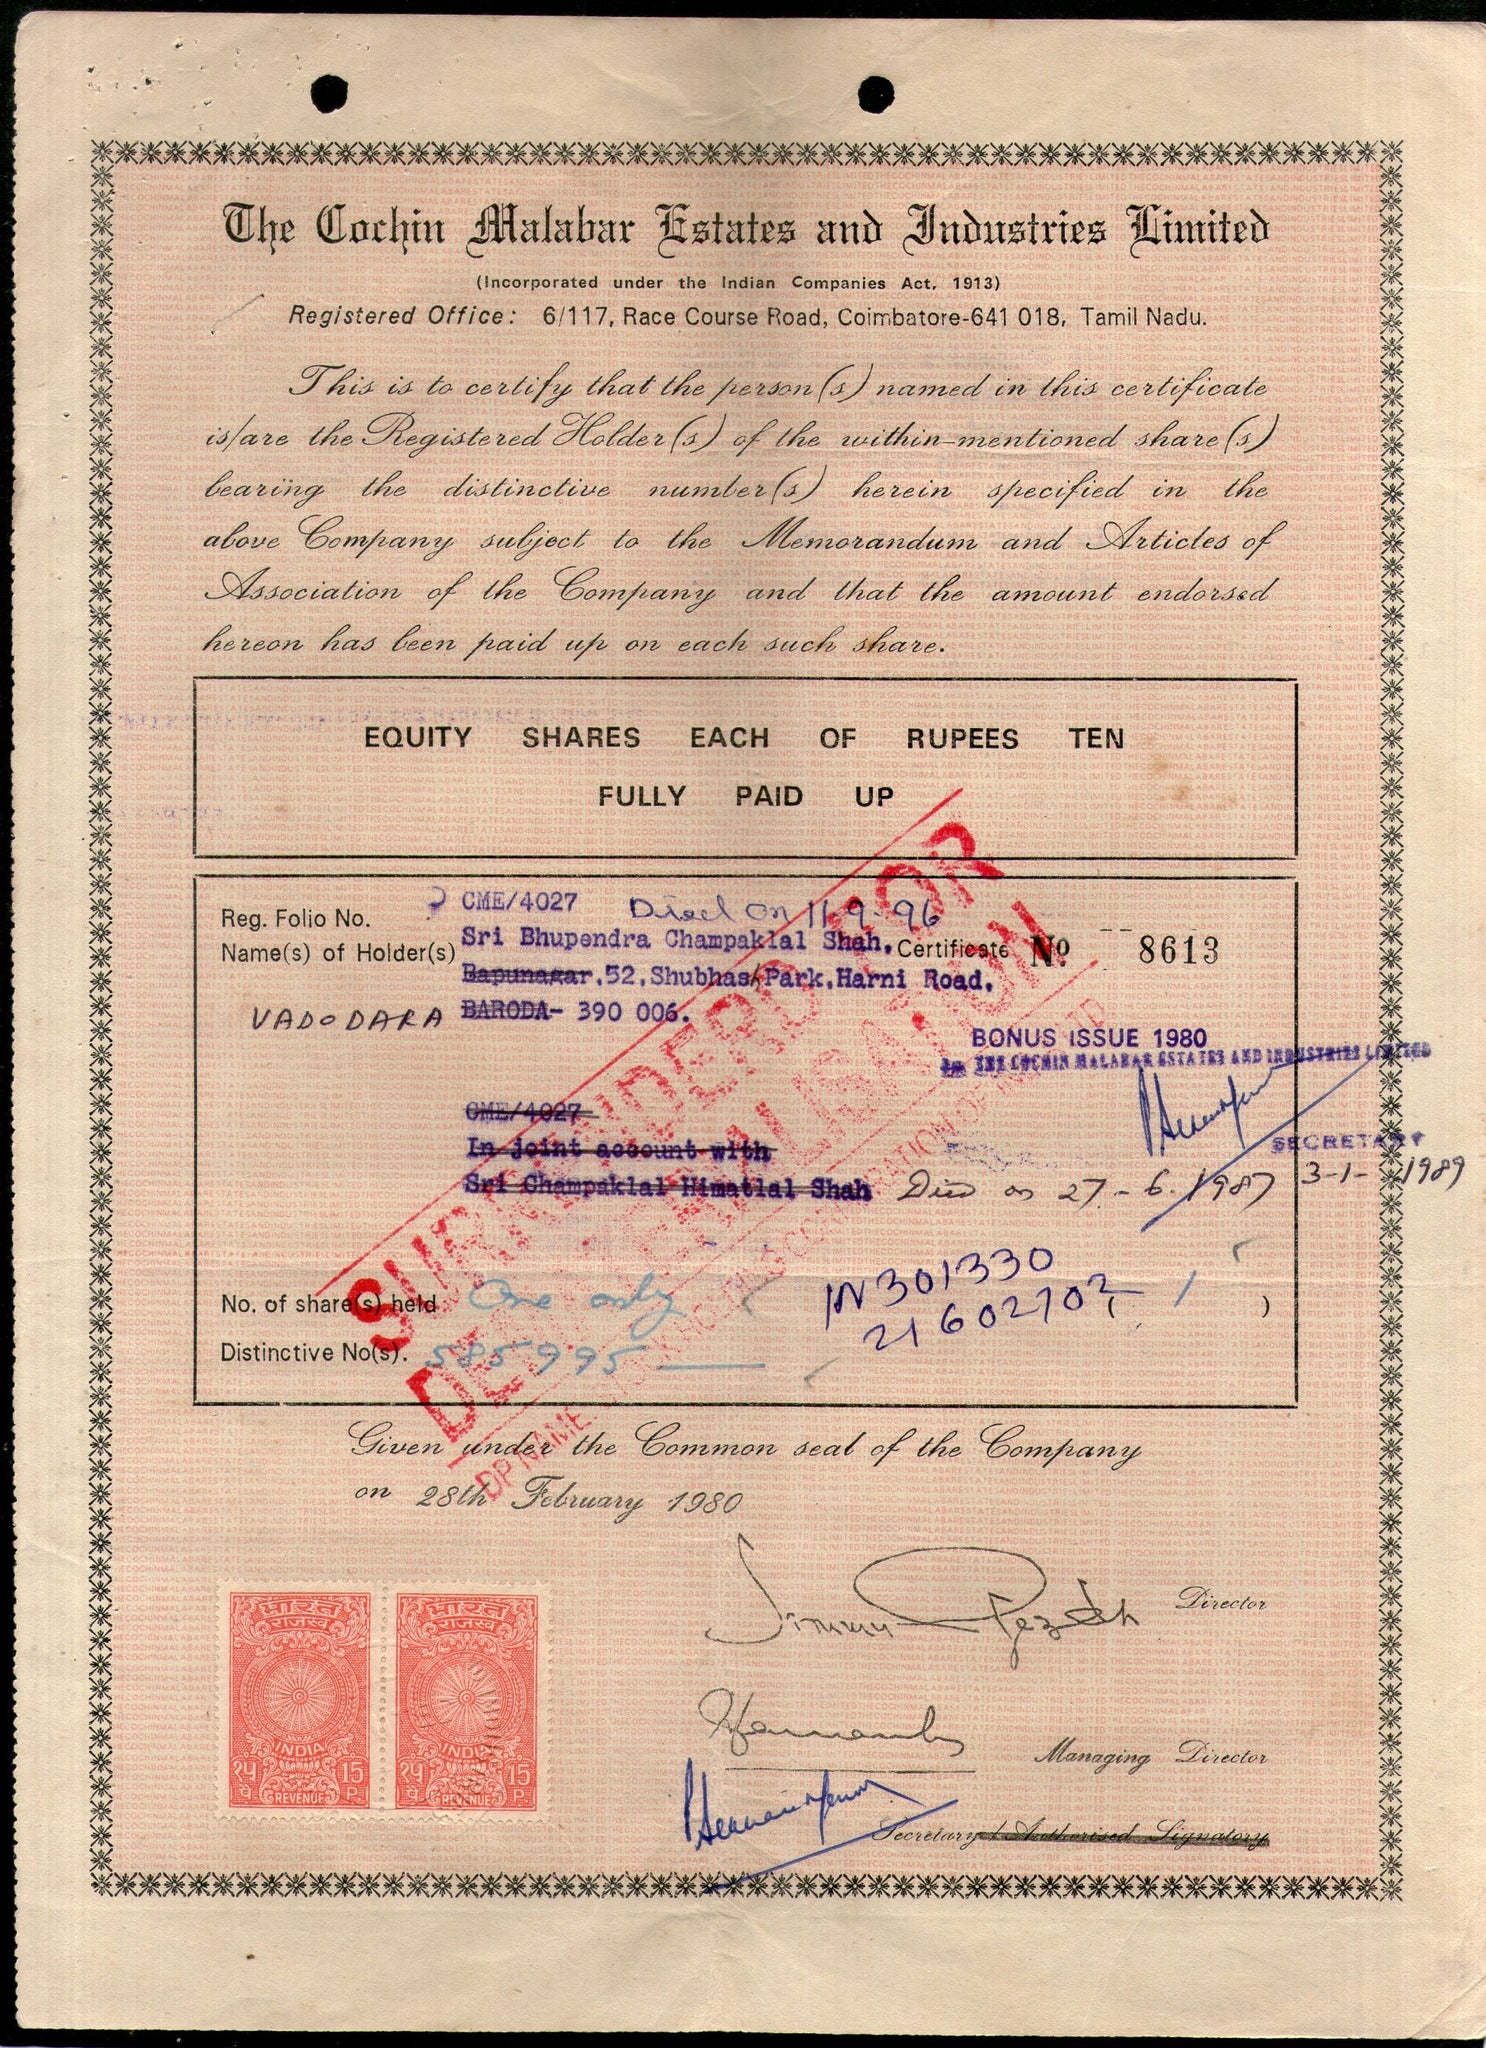 The Cochin Malabar Estates and Industries Limited
(Incorporated under the Indian Companies Act, 1913)
Registered Office: 6/117, Race Course Road, Coimbatore-641 018, Tamil Nadu.
This is to certify that the person(s) named in this certificate
is/are the Registered Holder(s) of the within-mentioned share(s)
bearing the distinctive number(s) herein specified in the
above Company subject to the Memorandum and Articles of
Association of the Company and that the amount endorsed
hereon has been paid up on each such share.
EQUITY SHARES EACH OF RUPEES TEN
FULLY PAID UP
Reg. Folio No. CME/4027 Died on 11-9-96
Name(s) of Holder(s) Sri Bhupendra Champaklal Shah. Certificate No. 8613
Bapunagar, 52, Shubhash Park, Harni Road,
VADODARA BARODA- 390 006.
BONUS ISSUE 1980
THE COCHIN MALABAR ESTATES AND INDUSTRIES LIMITED
CME/4027
In joint account with
SECRETARY
Sri Champaklal Himatlal Shah Died on 27-6-1987 3-1-1989
SURRENDERED FOR
DEMATERIALISATION
DP NAME
IN301330
No. of share(s) held: One only ( 1 )
21602702
Distinctive No(s). 585995
Given under the Common seal of the Company
on 28th February 1980
Director
Managing Director
Secretary / Authorised Signatory
भारत
राजस्व
INDIA
१५ पै. 15 P.
REVENUE
भारत
राजस्व
INDIA
१५ पै. 15 P.
REVENUE